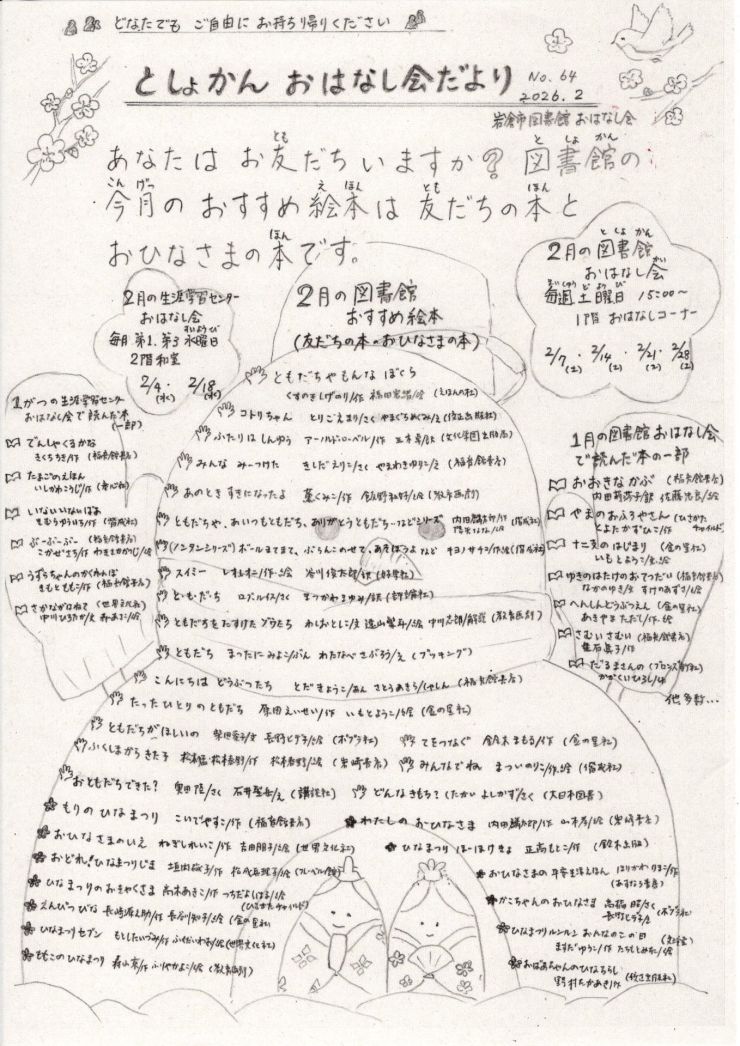 どなたでも ご自由に お持ち帰りください
としょかん おはなし会だより No.64
2026.2
岩倉市図書館 おはなし会
あなたは お友だちいますか? 図書館の
今月の おすすめ絵本は 友だちの本と
おひなさまの本です。
2月の生涯学習センター
おはなし会
毎月 第1.第3 水曜日
2階和室
2/4(水)・2/18(水)
2月の図書館
おすすめ絵本
(友だちの本・おひなさまの本)
2月の図書館
おはなし会
毎週土曜日 15:00~
1階 おはなしコーナー
2/7(土)・2/14(土)・2/21(土)・2/28(土)
1がつの生涯学習センター
おはなし会で読んだ本
(一部)
でんしゃくるかな
きくちちき/作 (福音館書店)
たまごのえほん
いしかわこうじ/作 (童心社)
いないいないばあ
ぶーぶーぶー (福音館書店)
こかぜさち/作 わきさかかつじ/絵
うずらちゃんのかくれんぼ
きもとももこ/作 (福音館書店)
さかながはねて (世界文化社)
中川ひろたか/文 森あさこ/絵
ともだちやもんな ぼくら
くすのきしげのり/作 福田岩緒/絵 (えほんの杜)
コトリちゃん とりごえまり/さく やまぐちめぐみ/え (佼正出版社)
ふたりは しんゆう アーノルド・ローベル/作 三木卓/訳 (文化学園出版局)
みんな みーつけた きしだえりこ/さく やまわきゆりこ/え (福音館書店)
あのとき すきになったよ 薫くみこ/作 飯野和好/絵 (教育画劇)
ともだちや、あいつもともだち、ありがとうともだち…などシリーズ 内田麟太郎/作 (偕成社)
(ノンタンシリーズ) ボールまてまて、ぶらんこのせて、あそぼうよ など キヨノサチコ/作・絵 (偕成社)
スイミー レオ=レオニ/作・絵 谷川俊太郎/訳 (好学社)
と・も・だ・ち ロブ・ルイス/さく まつかわまゆみ/訳 (評論社)
ともだちを たすけた ゾウたち わしおとしこ/文 遠山繁年/絵 中川志郎/解説 (教育画劇)
ともだち まったに みよこ/ぶん わたなべ さぶろう/え (ブッキング)
こんにちは どうぶつたち とだきょうこ/あん さとうあきら/しゃしん (福音館書店)
たったひとりのともだち 原田えいせい/作 いもとようこ/絵 (金の星社)
ともだちがほしいの 柴田愛子/文 長野ヒデ子/絵 (ポプラ社)
てをつなぐ 鈴木まもる/作 (金の星社)
ふくしまからきた子 松本猛・松本春野/作 松本春野/絵 (岩崎書店)
みんなでね まついのりこ/作・絵 (偕成社)
おともだちできた? 恩田陸/さく 石井聖岳/え (講談社)
どんなきもち? (たかい よしかず/さく (大日本図書)
もりの ひなまつり こいでやすこ/作 (福音館書店)
わたしの おひなさま 内田麟太郎/作 山本孝/絵 (岩崎書店)
おひなさまのいえ ねぎしれいこ/作 吉田朋子/絵 (世界文化社)
ひなまつり ほーほけきょ 正高もとこ/作 (鈴木出版)
おどれ!ひなまつりじま 垣内磯子/作 松成真理子/絵 (フレーベル館)
おひなさまの 平安生活えほん ほりかわ りまこ/作
(あすなろ書房)
ひなまつりのおきゃくさま 高木あきこ/作 つちだよしはる/絵
(ひさかたチャイルド)
かこちゃんのおひなさま
長野ヒデ子/え (ポプラ社)
えんぴつびな 長崎源之助/作 長谷川知子/絵 (金の星社)
ひなまつりルンルン おんなのこの日
ますだゆうこ/作 たちもとみちこ/絵
ひなまつりセブン もとしたいづみ/作 ふくだいわお/絵 (世界文化社)
おばあちゃんのひなちらし
野村たかあき/作 (佼正出版社)
ももこのひなまつり 森山京/作 ふりやかよこ/絵 (教育画劇)
1月の図書館おはなし会
で読んだ本の一部
おおきなかぶ (福音館書店)
内田莉莎子/訳 佐藤忠良/絵
やまのおふろやさん (ひさかたチャイルド)
とよたかずひこ/作
十二支のはじまり (金の星社)
いもとようこ/文・絵
ゆきのはたけのおてつだい (福音館書店)
なかのゆき/文 すけのあずさ/絵
へんしんどうぶつえん (金の星社)
あきやまただし/作・絵
さむいさむい (福音館書店)
だるまさんの (ブロンズ新社)
かがくいひろし/作
他多数…